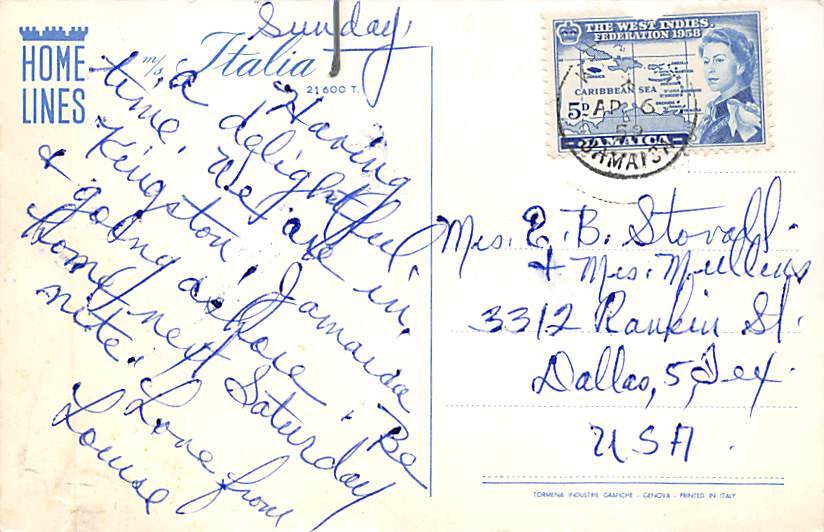 HOME
LINES
m/s Italia
21600 T.
Sunday,
Having
a delightful
time. We are in
Kingston, Jamaica
& going ashore. Be
home next Saturday
nite. Love from
Louise
THE WEST INDIES.
FEDERATION 1958
CARIBBEAN SEA
5D
JAMAICA
AP 6
JAMAICA
Mrs. E. B. Stovall.
+ Mrs. Mullens
3312 Rankin St.
Dallas, 5, Tex.
USA.
TORMENA INDUSTRIE GRAFICHE - GENOVA - PRINTED IN ITALY